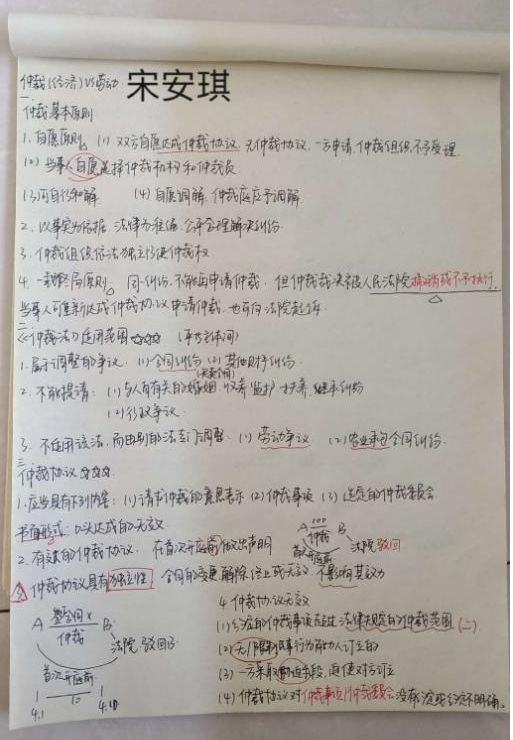 仲裁(经济)VS劳动 宋安琪
一
仲裁基本原则
1. 自愿原则。(1) 双方自愿达成仲裁协议 无仲裁协议,一方申请,仲裁组织不予受理
(2) 当事人自愿选择仲裁机构和仲裁员
(3) 可自行和解 (4) 自愿调解,仲裁庭应予调解
2. 以事实为依据 法律为准绳 公平合理解决纠纷
3. 仲裁组织依法独立行使仲裁权
4. 一裁终局原则。同一纠纷,不能再申请仲裁,但仲裁裁决被人民法院撤销或不予执行,
当事人可重新达成仲裁协议申请仲裁,也可向法院起诉
二
《仲裁法》适用范围☆☆☆ (平等主体间)
1. 属于调整的争议 (1) 合同纠纷 (2) 其他财产纠纷
2. 不能提请:(1) 与人身有关的婚姻、收养、监护、扶养、继承纠纷
(2) 行政争议
3. 不适用该法,而由别的法专门调整:(1) 劳动争议 (2) 农业承包合同纠纷
三
仲裁协议☆☆☆
1. 应当具有下列内容:(1) 请求仲裁的意思表示 (2) 仲裁事项 (3) 选定的仲裁委员会
书面形式:口头达成的无效
A 100 B
仲裁
首次开庭前 法院 驳回
2. 有效的仲裁协议 在首次开庭前做出声明
3. 仲裁协议具有独立性 合同的变更、解除、终止或无效,不影响其效力
A 签合同 B
仲裁
法院 驳回
首次开庭前
1 10 1
4.1 4.10
4. 仲裁协议无效
(1) 约定的仲裁事项超过法律规定的仲裁范围(二)
(2) 无/限制民事行为能力人订立的
(3) 一方采取胁迫手段,迫使对方订立
(4) 仲裁协议对仲裁事项/仲裁委员会没有约定或约定不明确。